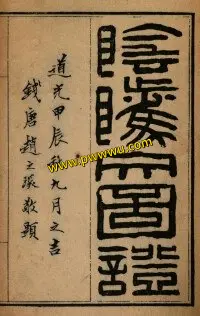 陰隲文圖證
道光甲辰秋九月之吉
錢唐趙之琛敬題
www.pwwwu.com